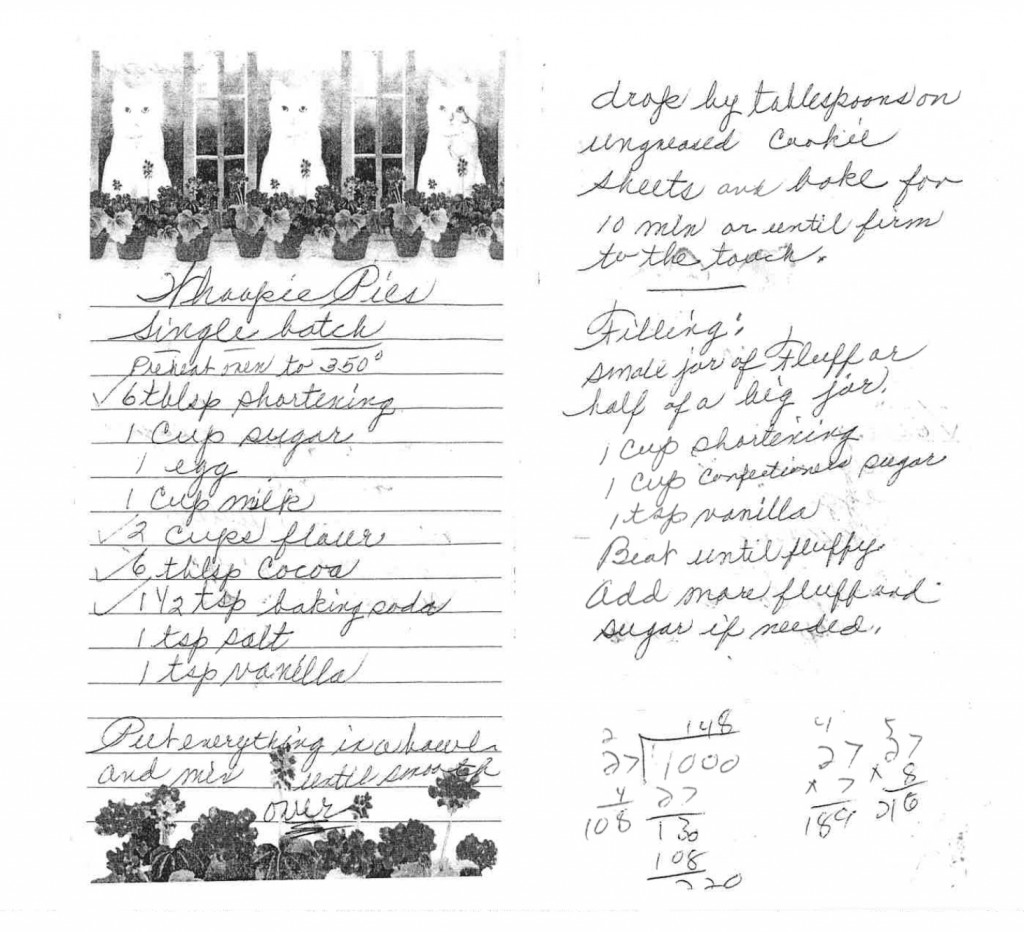 Whoopie Pies
Single batch
Preheat oven to 350°
✓ 6 tblsp shortening
1 Cup sugar
1 egg
1 Cup milk
✓ 2 cups flour
✓ 6 tblsp Cocoa
✓ 1 1/2 tsp baking soda
1 tsp salt
1 tsp vanilla
Put everything in a bowl
and mix until smooth
over
drop by tablespoons on
ungreased Cookie
sheets and bake for
10 min or until firm
to the touch.
Filling:
small jar of Fluff or
half of a big jar.
1 Cup shortening
1 Cup Confectioners sugar
1 tsp vanilla
Beat until fluffy
Add more fluff and
sugar if needed.
2 148
27 1000
4 27
108 130
108
220
4
27
x 7
189
5
27
x 8
216